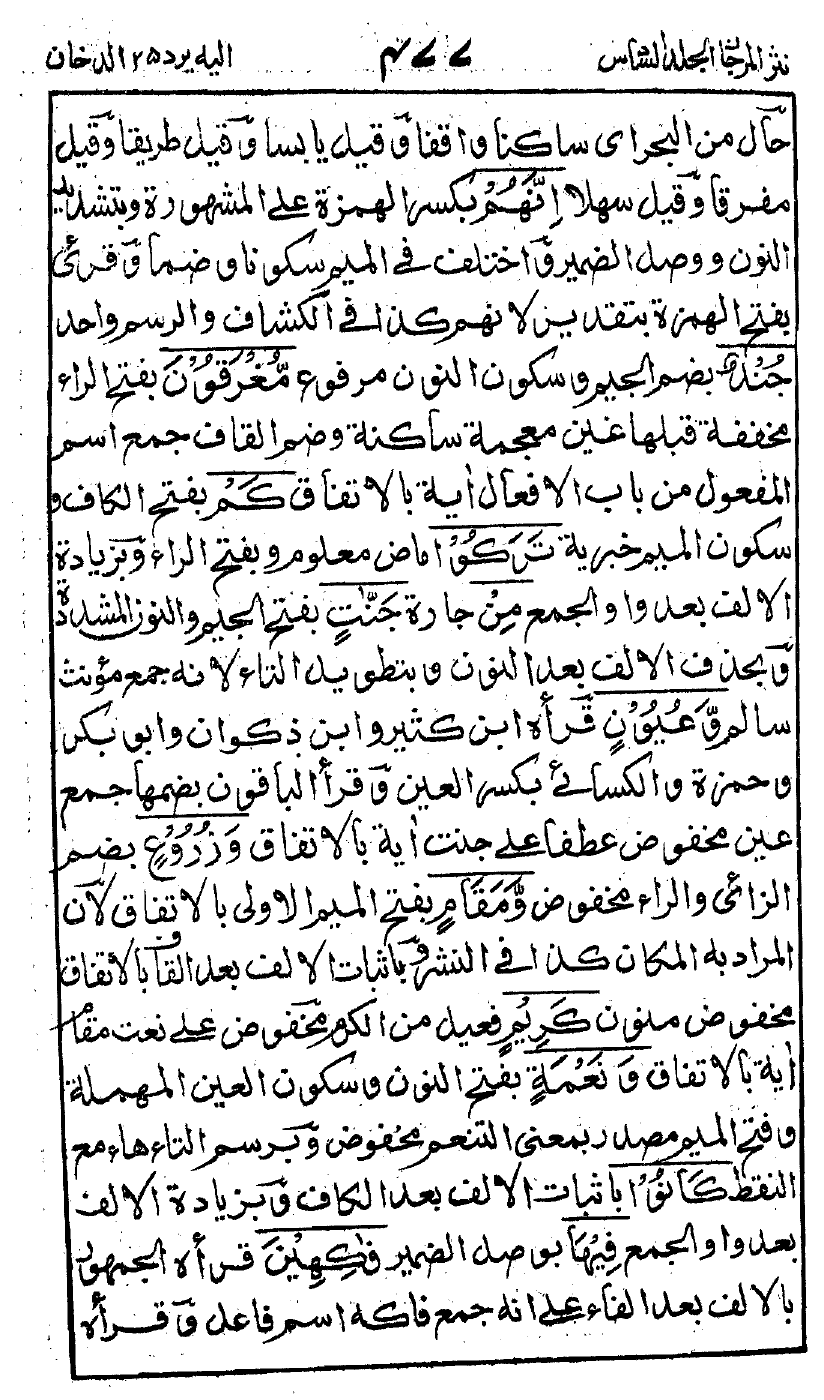 نثر المرجان الجلد السادس ۴۷۷ اليه يرد ۲۵ الدخان
حال من البحر اى ساكنا واقفا وقيل يابسا وقيل طريقا وقيل
مفرقا وقيل سهلا اِنَّهُمْ بكسر الهمزة على المشهورة وبتشديد
النون ووصل الضمير واختلف فى الميم سكونا وضما وقرئ
بفتح الهمزة بتقدير لانهم كذا فى الكشاف والرسم واحد
جُنْدٌ بضم الجيم وسكون النون مرفوع مُّغْرَقُوْنَ بفتح الراء
مخففة قبلها غين معجمة ساكنة وضم القاف جمع اسم
المفعول من باب الافعال اٰية بالاتفاق كَمْ بفتح الكاف و
سكون الميم خبرية تَرَكُوْا ماض معلوم وبفتح الراء وبزيادة
الالف بعد واو الجمع مِنْ جارة جَنّٰتٍ بفتح الجيم والنون المشددة
وبحذف الالف بعد النون وبتطويل التاء لانه جمع مؤنث
سالم وَّعُيُوْنٍ قرأه ابن كثير وابن ذكوان وابو بكر
وحمزة والكسائى بكسر العين وقرأ الباقون بضمها جمع
عين مخفوض عطفا على جنت اٰية بالاتفاق وَزُرُوْعٍ بضم
الزائى والراء مخفوض وَّمَقَامٍ بفتح الميم الاولى بالاتفاق لان
المراد به المكان كذا فى النشر وباثبات الالف بعد القاف بالاتفاق
مخفوض منون كَرِيْمٍ فعيل من الكرم مخفوض على نعت مقام
اٰية بالاتفاق وَنَعْمَةٍ بفتح النون وسكون العين المهملة
وفتح الميم مصدر بمعنى التنعم مخفوض وبرسم التاء هاء مع
النقط كَانُوْا باثبات الالف بعد الكاف وبزيادة الالف
بعد واو الجمع فِيْهَا بوصل الضمير فٰكِهِيْنَ قرأه الجمهور
بالالف بعد الفاء على انه جمع فاكه اسم فاعل وقرأه